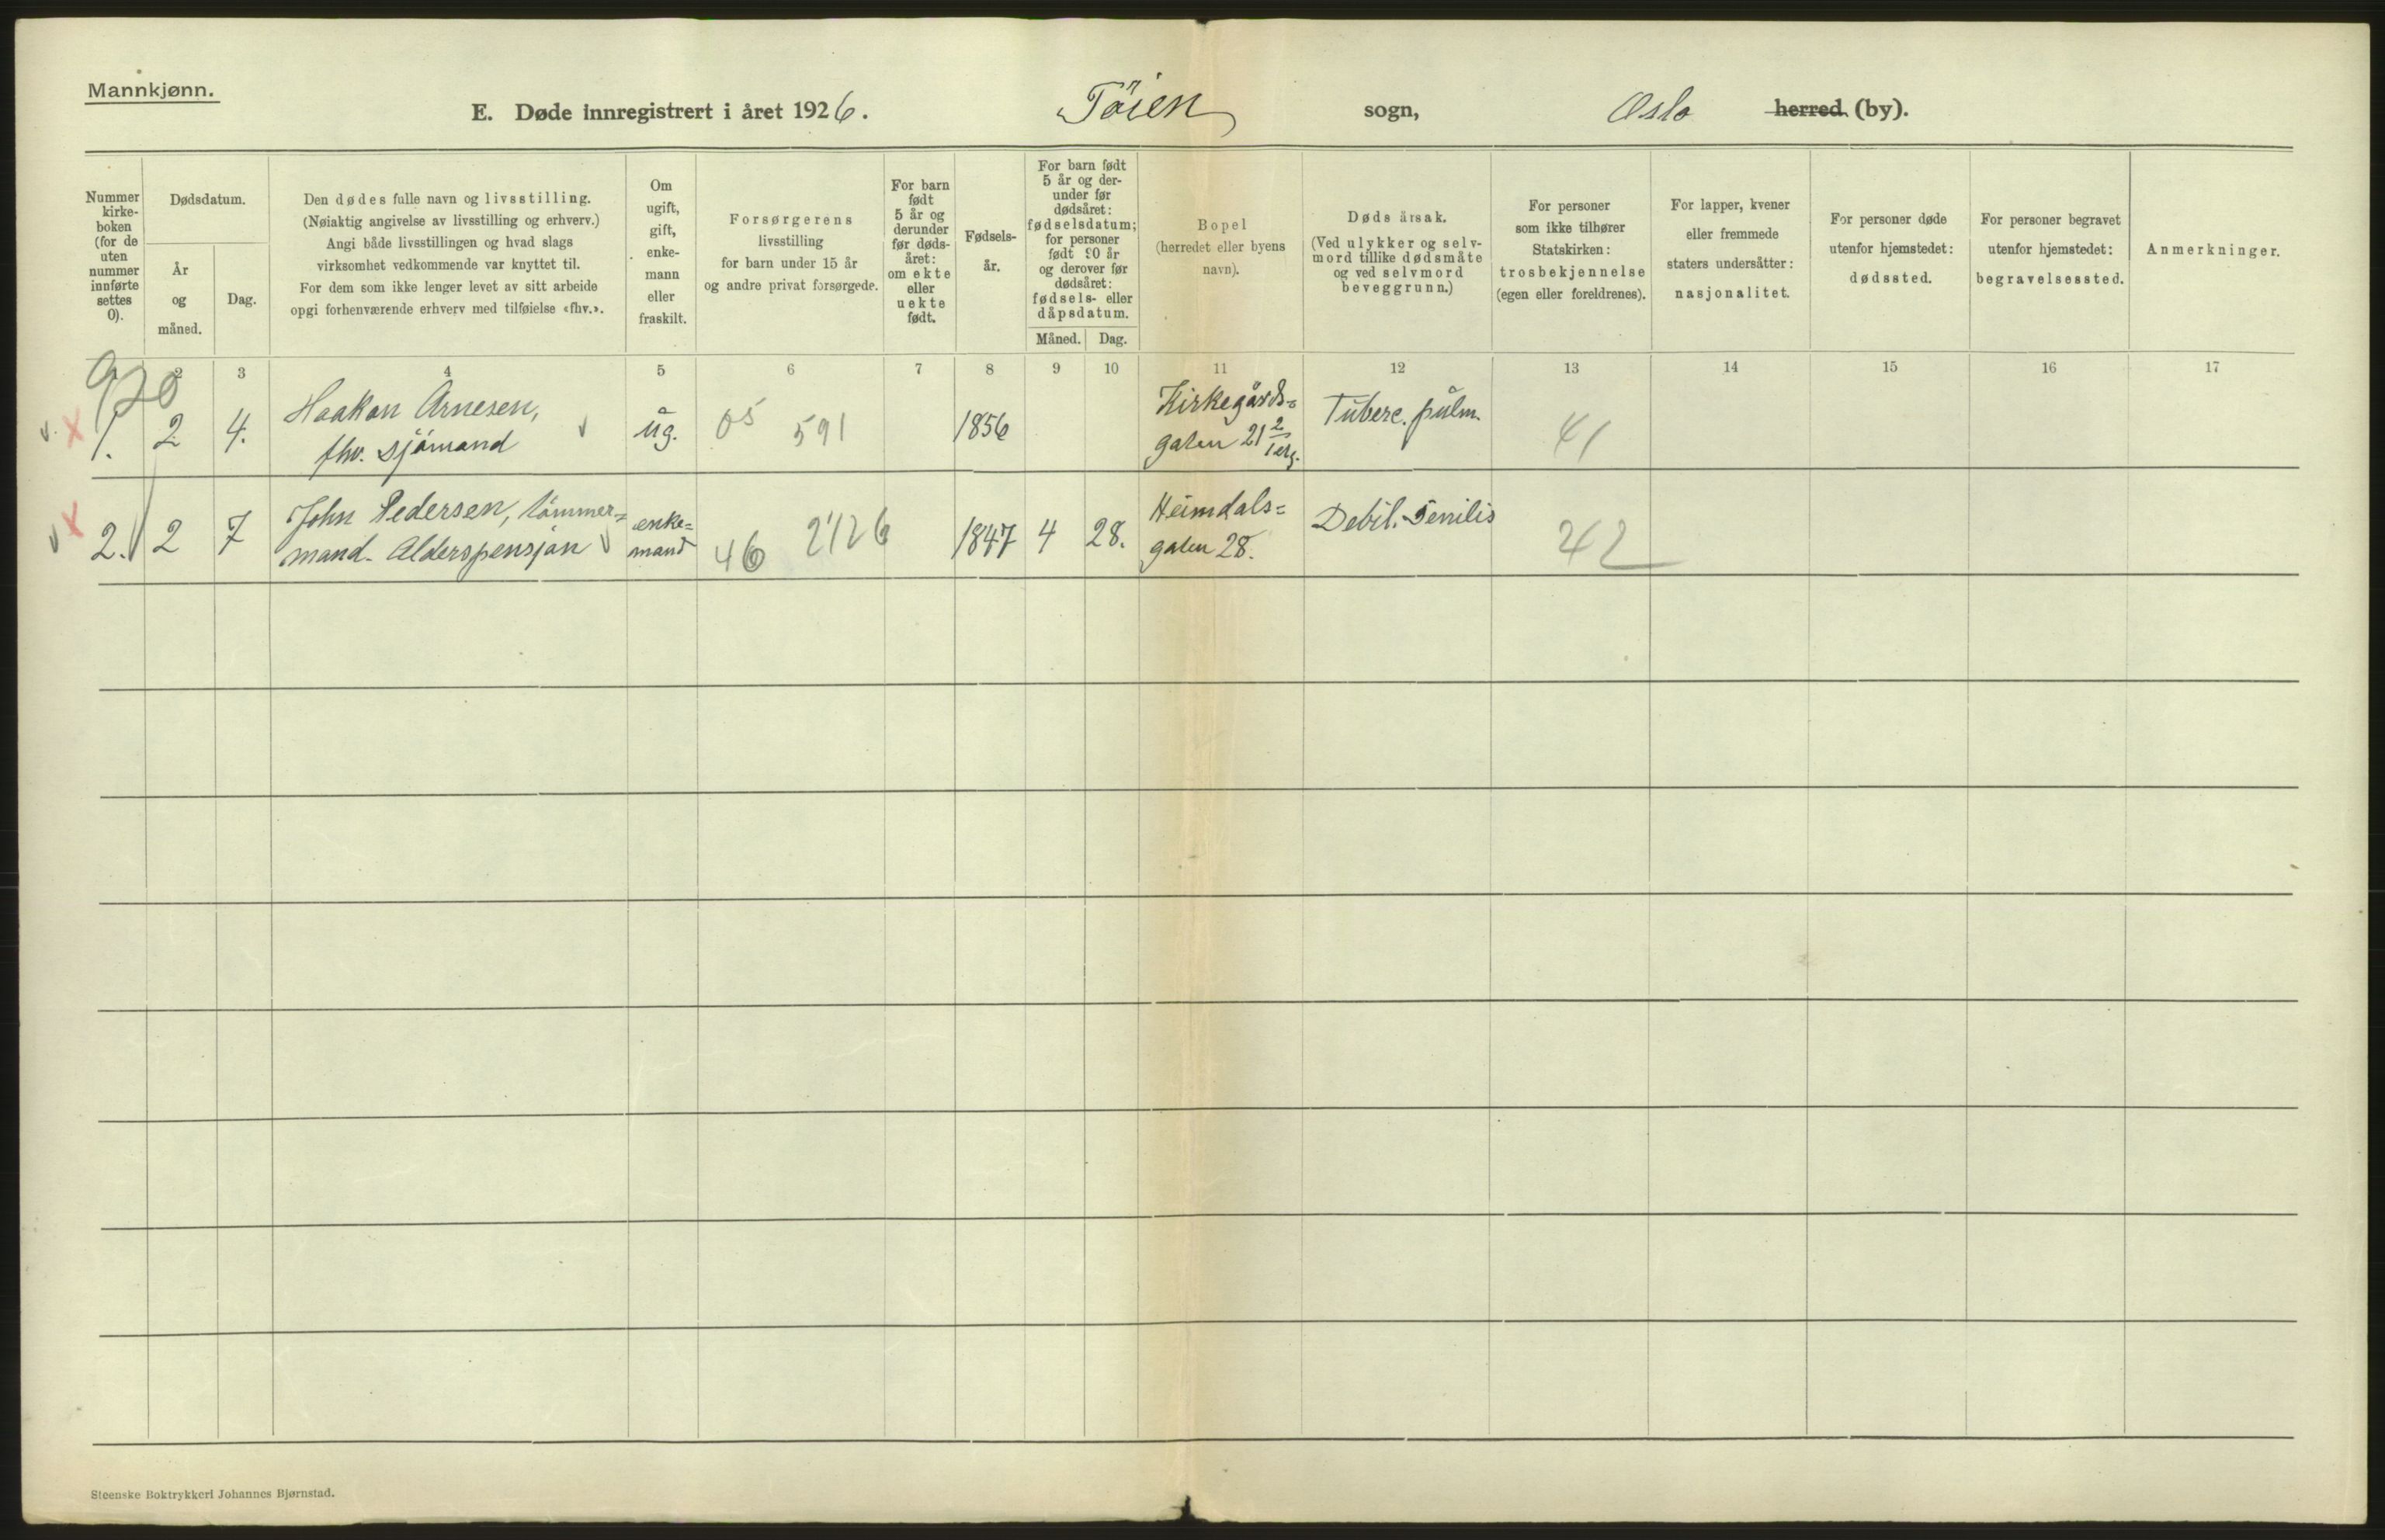 Mannkjønn.
E. Døde innregistrert i året 1926. Töien sogn, Oslo herred (by).
Nummer
kirke-
boken
(for de
uten
nummer
innførte
settes
0).
Dødsdatum.
År
og
måned.
Dag.
Den dødes fulle navn og livsstilling.
(Nøiaktig angivelse av livsstilling og erhverv.)
Angi både livsstillingen og hvad slags
virksomhet vedkommende var knyttet til.
For dem som ikke lenger levet av sitt arbeide
opgi forhenværende erhverv med tilføielse «fhv.».
Om
ugift,
gift,
enke-
mann
eller
fraskilt.
Forsørgerens
livsstilling
for barn under 15 år
og andre privat forsørgede.
For barn
født
5 år og
derunder
før døds-
året:
om ekte
eller
uekte
født.
Fødsels-
år.
For barn født
5 år og der-
under før
dødsåret:
fødselsdatum;
for personer
født 90 år
og derover før
dødsåret:
fødsels- eller
dåpsdatum.
Måned. Dag.
Bopel
(herredet eller byens
navn).
Dødsårsak.
(Ved ulykker og selv-
mord tillike dødsmåte
og ved selvmord
beveggrunn.)
For personer
som ikke tilhører
Statskirken:
trosbekjennelse
(egen eller foreldrenes).
For lapper, kvener
eller fremmede
staters undersåtter:
nasjonalitet.
For personer døde
utenfor hjemstedet:
dødssted.
For personer begravet
utenfor hjemstedet:
begravelsessted.
Anmerkninger.
2 3 4 5 6 7 8 9 10 11 12 13 14 15 16 17
920
v. x 1. 2 4. Haakon Arnesen,
fhv. sjömand v
ug. 05 591 1856
Kirkegårds=
gaten 21 2/1 etg.
Tuberc. pulm.
41
v x 2. 2 7 John Pedersen, tömmer=
mand. Alderspensjon v
enke=
mand
46 2126 1847 4 28.
Heimdals=
gaten 28.
Debil. Senilis
42
Steenske Boktrykkeri Johannes Bjørnstad.